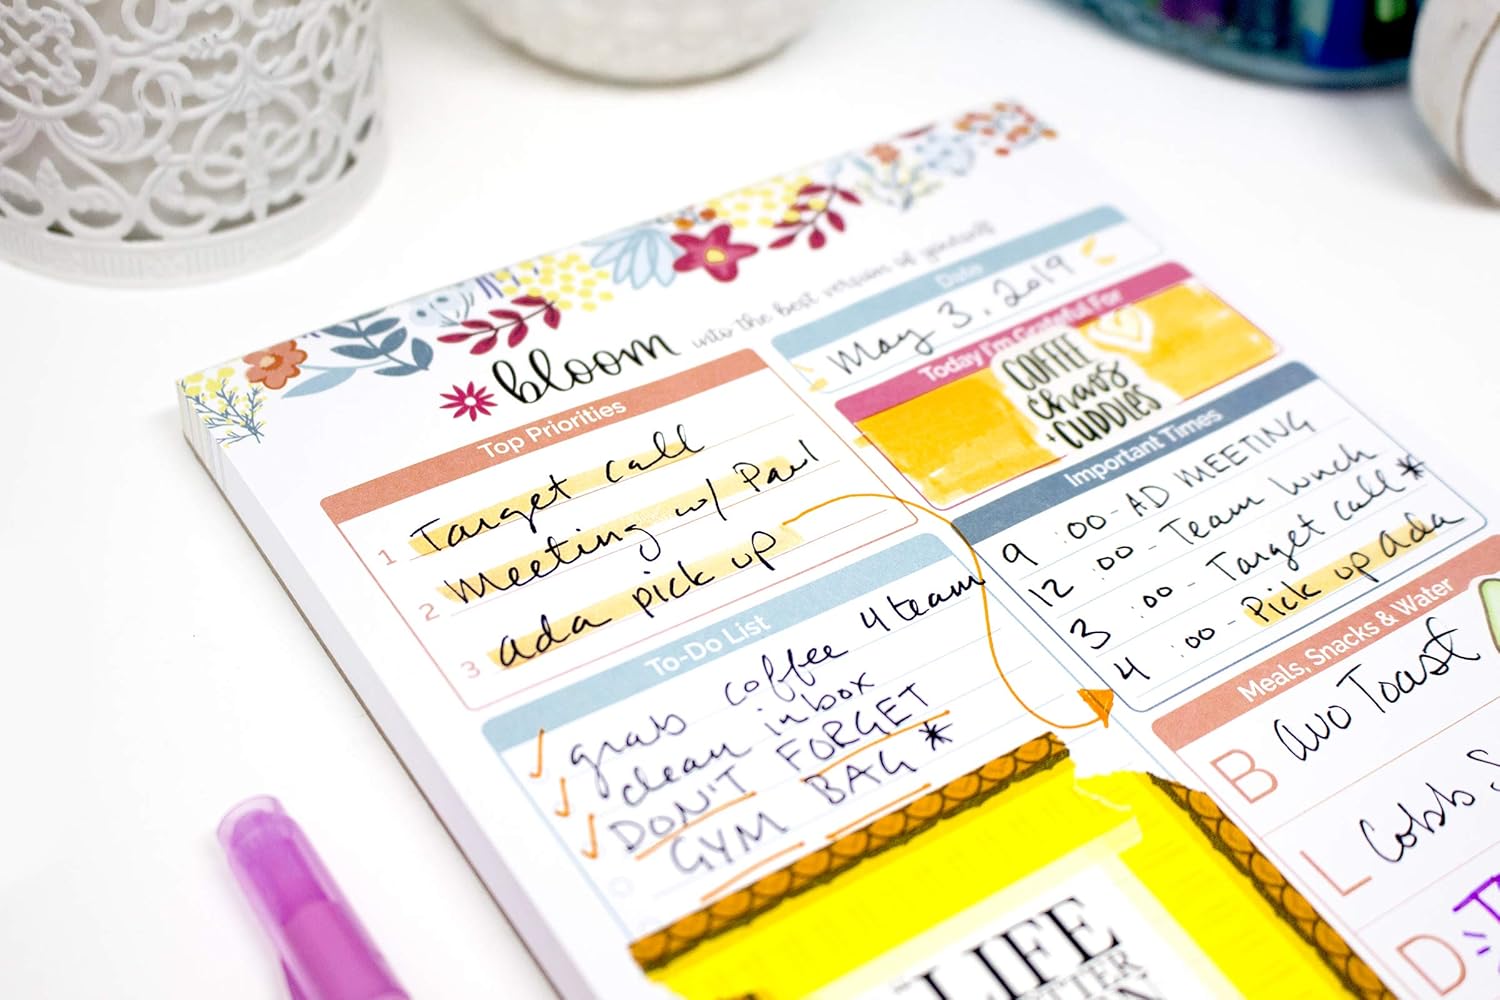 bloom into the best version of yourself
Top Priorities
1 Target call
2 Meeting w/ Paul
3 ada pick up
To-Do List
grab coffee 4 team
clean inbox
DON'T FORGET
GYM BAG *
LIFE
Date
May 3, 2019
Today I'm Grateful For
COFFEE
chaos
+ CUDDLES
Important Times
9 :00 - AD MEETING
12 :00 - Team lunch
3 :00 - Target call *
4 :00 - Pick up ada
Meals, Snacks & Water
B avo Toast
L Cobb
D